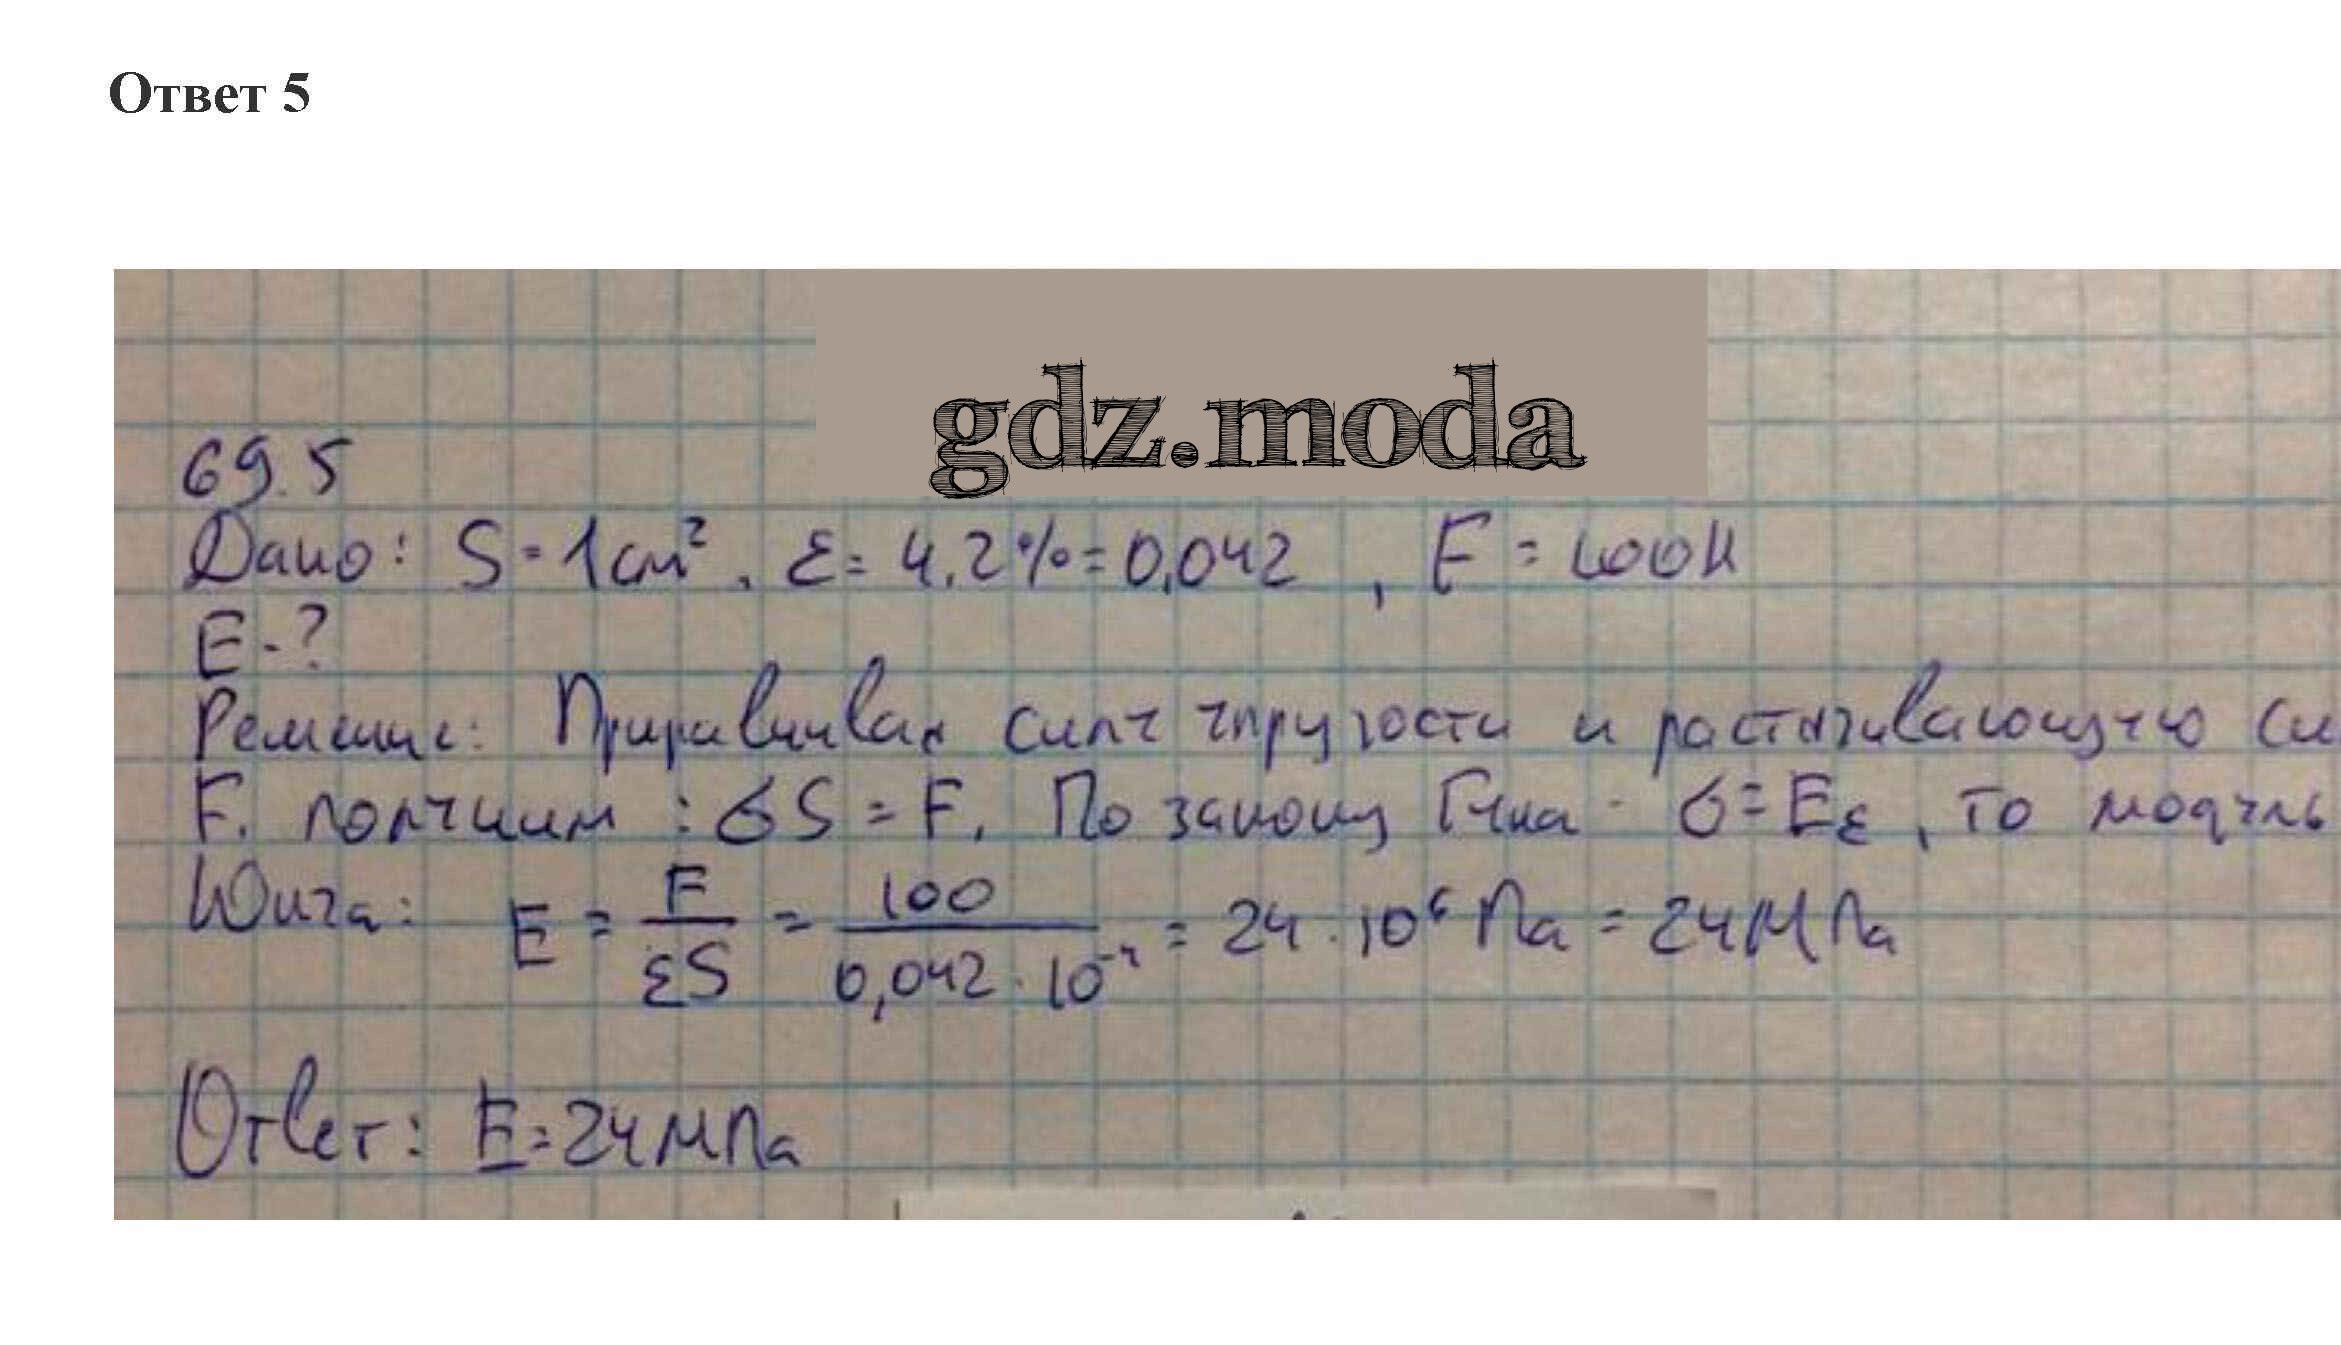 Ответ 5
gdz.moda
69.5
Дано: S = 1 см², ε = 4.2% = 0,042, F = 100Н
E - ?
Решение: Приравнивая силу упругости и растягивающую си
F. получим: σS = F. По закону Гука - σ = Eε, то модуль
Юнга: E = F/εS = 100/0,042·10⁻⁴ = 24·10⁶ Па = 24МПа
Ответ: E = 24МПа